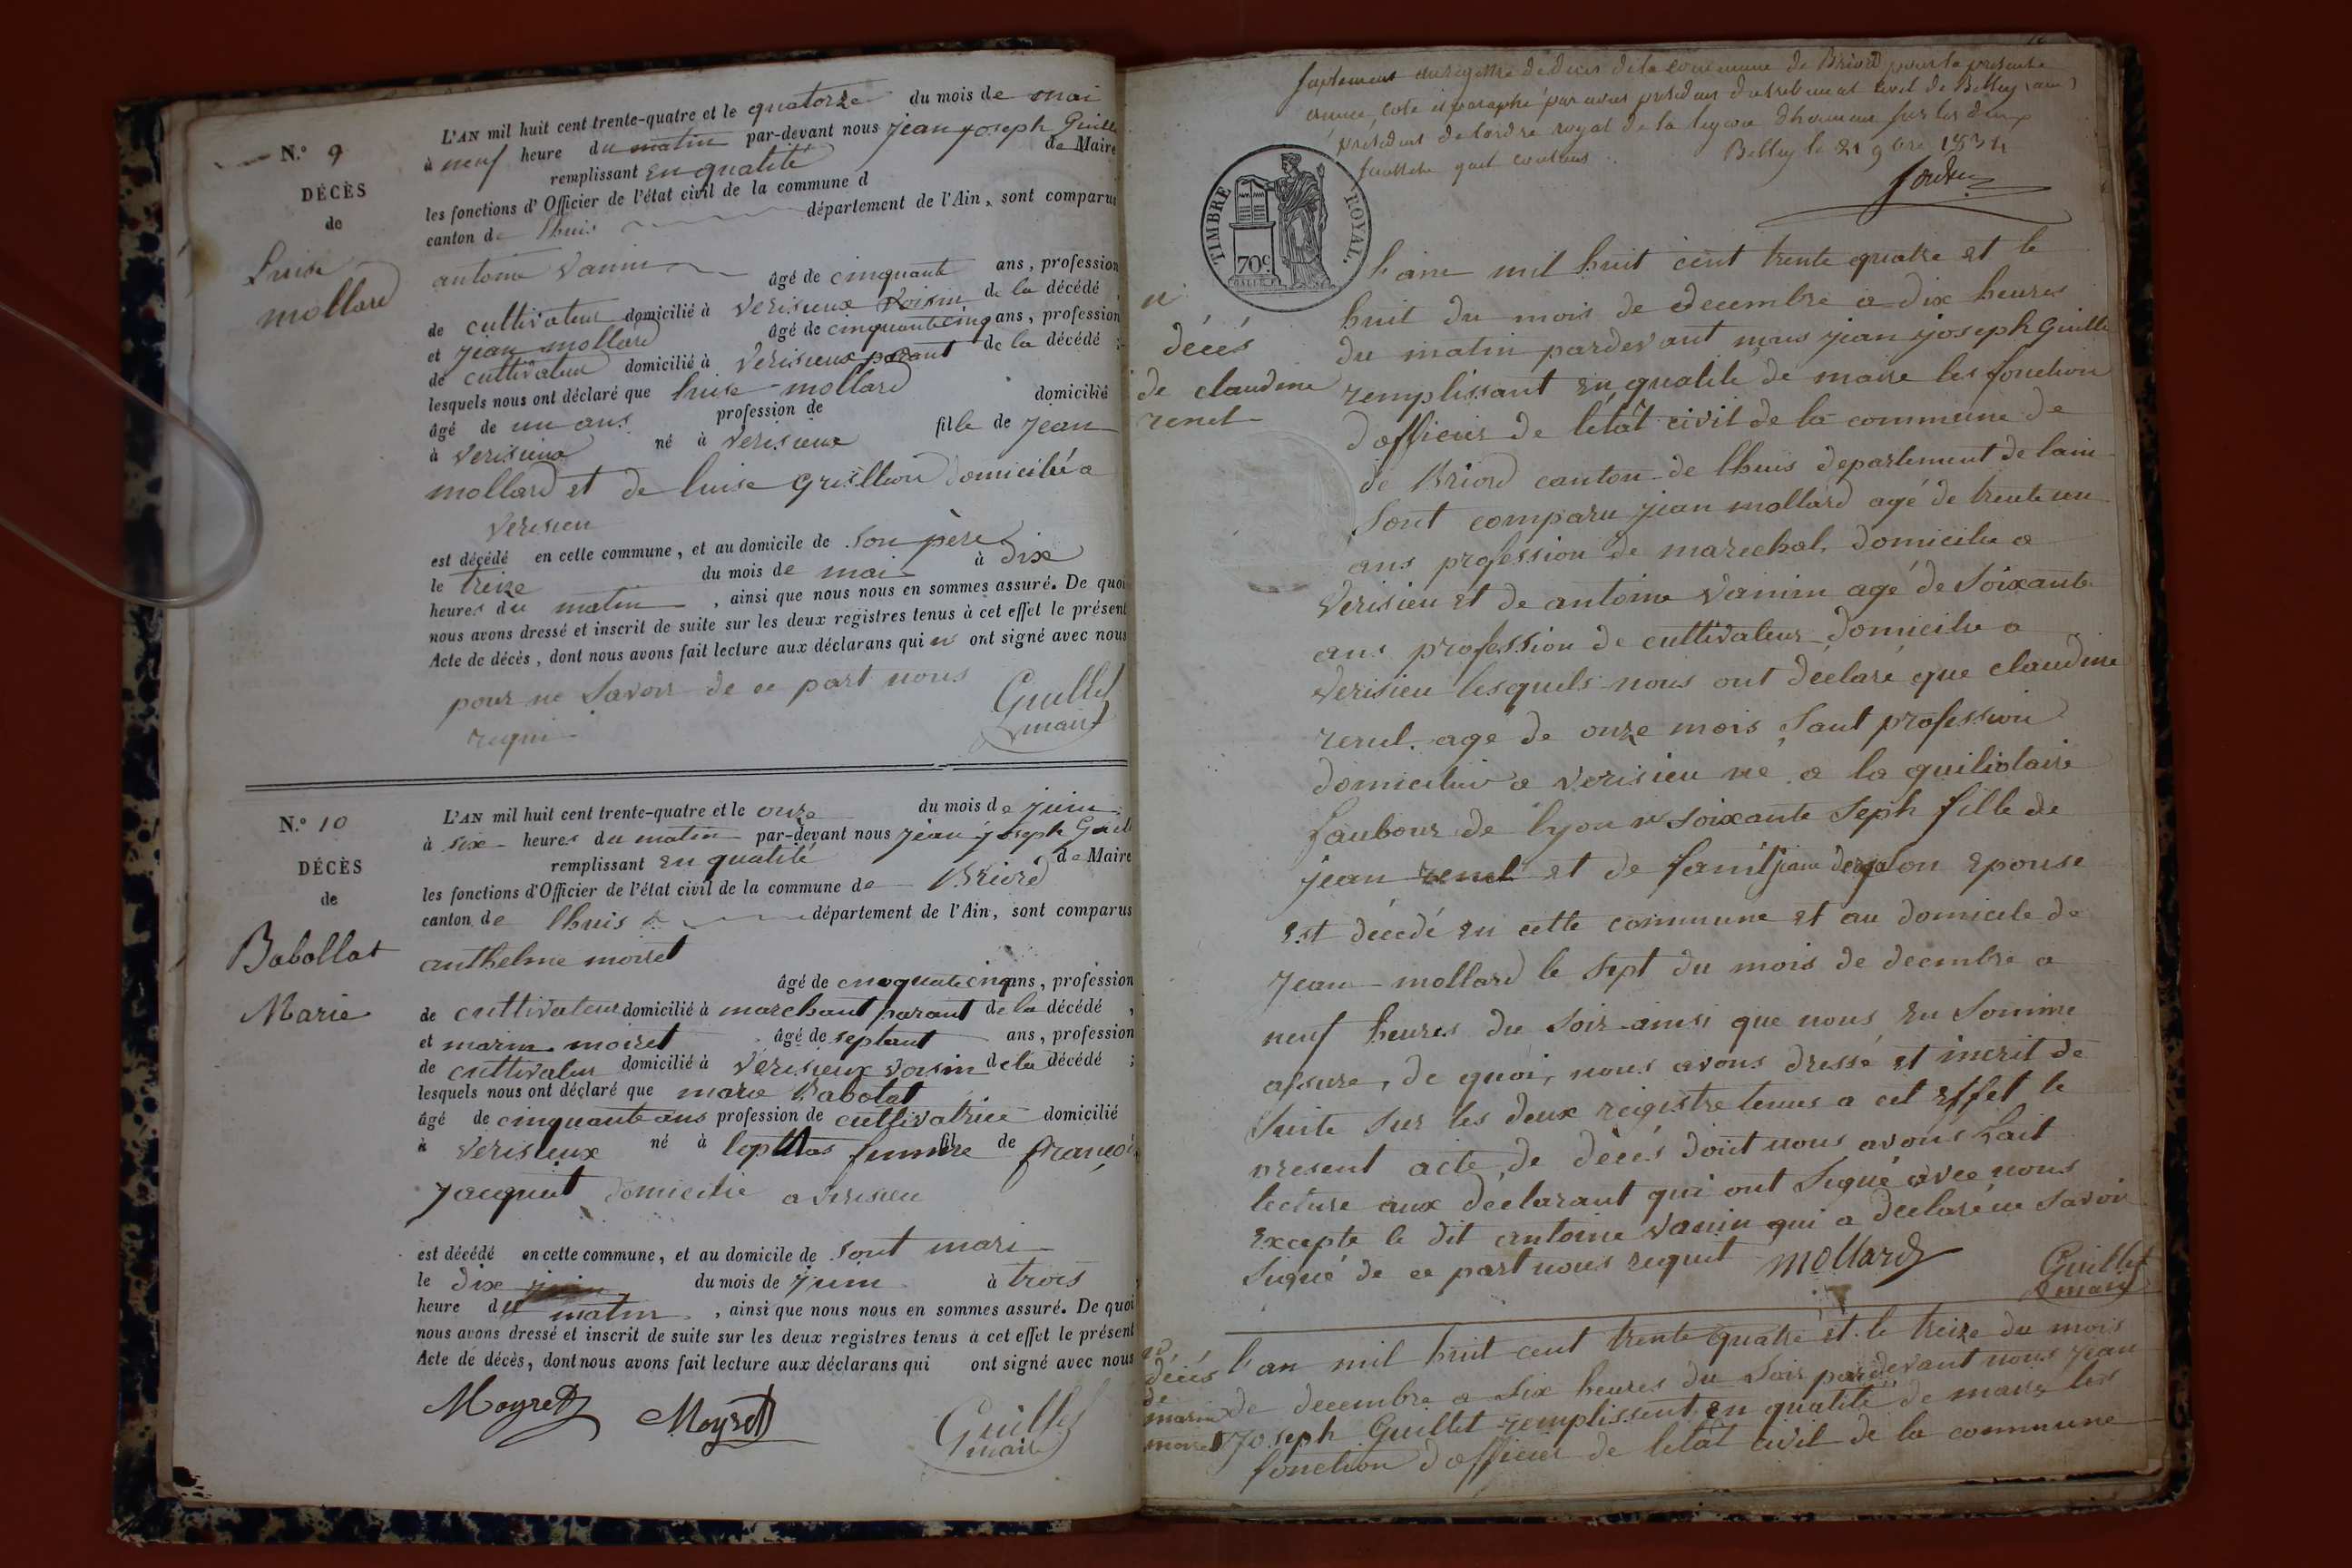 N.º 9
DÉCÈS
de
Luise
mollard
L'AN mil huit cent trente-quatre et le quatorze du mois de mai
à neuf heure du matin par-devant nous jean joseph Guille
remplissant en qualité de Maire
les fonctions d'Officier de l'état civil de la commune d
canton de lhuis département de l'Ain, sont comparus
antoine Vanin
âgé de cinquante ans, profession
de cultivateur domicilié à Verisieux Voisin de la décédé
et jean mollard âgé de cinquante cinq ans, profession
de cultivateur domicilié à Verisieux parant de la décédé ;
lesquels nous ont déclaré que luise mollard
âgé de un ans profession de domicilié
à Verisieux né à Verisieux fille de jean
mollard et de luise domicilié a
Verisieu
est décédé en cette commune, et au domicile de Son père
le treize du mois de mai à dix
heures du matin, ainsi que nous nous en sommes assuré. De quoi
nous avons dressé et inscrit de suite sur les deux registres tenus à cet effet le présent
Acte de décès, dont nous avons fait lecture aux déclarans qui n ont signé avec nous
pour ne Savoir de ce part nous
requi
Guillet
maire
N.º 10
DÉCÈS
de
Babollat
Marie
L'AN mil huit cent trente-quatre et le onze du mois de juin
à six heures du matin par-devant nous jean joseph Guil
remplissant en qualité de Maire
les fonctions d'Officier de l'état civil de la commune de Briord
canton de lhuis département de l'Ain, sont comparus
anthelme moiret
âgé de cinquante cinq ans, profession
de cultivateur domicilié à marchant parant de la décédé ,
et marin moiret âgé de septant ans, profession
de cultivateur domicilié à Verisieux Voisin de la décédé ;
lesquels nous ont déclaré que marie Babolat
âgé de cinquante ans profession de cultivatrice domicilié
à Verisieux né à femme fil de françoi
jacquet domicilie a Verisieu
est décédé en cette commune, et au domicile de Sont mari
le dix du mois de juin à trois
heure du matin, ainsi que nous nous en sommes assuré. De quoi
nous avons dressé et inscrit de suite sur les deux registres tenus à cet effet le présent
Acte de décès, dont nous avons fait lecture aux déclarans qui ont signé avec nous
Moyret Moyret Guillet
maire
registre de deces de la commune de Briord pour la presente
année, coté et paraphé par nous president du tribunal civil de Belley (ain)
de lordre royal de la legion dhonneur sur les deux
Belley le 21 9bre 1834
TIMBRE ROYAL.
70c
n°
décés
de claudine
renel
l'ann mil huit cent trente quatre et le
huit du mois de decembre a dix heures
du matin pardevant nous jean joseph Guille
remplissant en qualité de maire les fonction
dofficier de létat civil de la commune de
de Briord canton de lhuis departement de lain
Sont comparu jean mollard agé de trente un
ans profession de marechal domicilie a
Verisieu et de antoine Vanin agé de Soixante
ans profession de cultivateur domicilie a
Verisieu lesquels nous ont déclaré que claudine
renel agé de onze mois Sant profession
domicilié a Verisieu né a la
faubour de lyon n° Soixante Seph fille de
jean renel et de epouse
est décedé en cette commune et au domicile de
jean mollard le Sept du mois de decembre a
neuf heures du Soir ainsi que nous en Somme
assure, de quoi, nous avons dressé et incrit de
Suite Sur les deux registre tenus a cet effet le
present acte de décés dont nous avons fait
lecture aux déclarant qui ont Signé avec nous
excepte le dit antoine Vanin qui a declaré ne Savoir
Signé de ce part nous requit mollard Guillet
maire
n°
décés
de
marin
moiret
l'an mil huit cent trente quatre et le treize du mois
de decembre a Six heures du Soir pardevant nous jean
joseph Guillet remplissent en qualité de maire les
fonction dofficier de létat civil de la commune